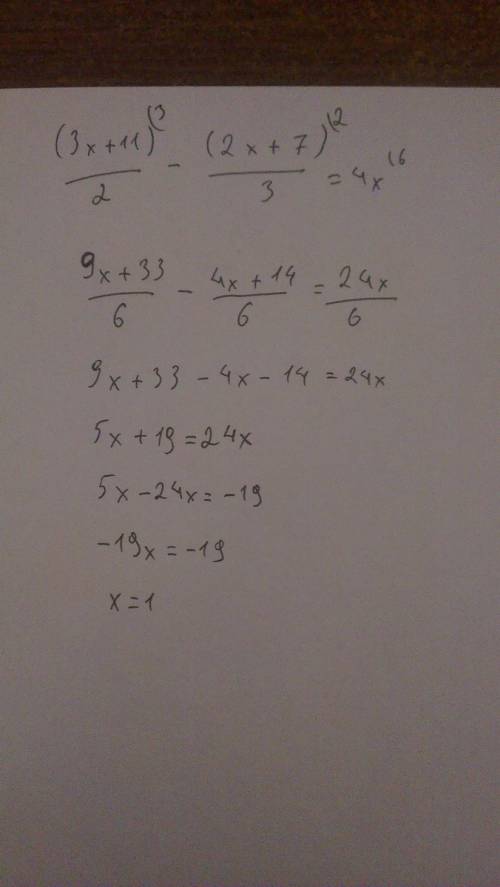 (3x+11)⁽³/2 - (2x+7)⁽²/3 = 4x⁽⁶
9x+33/6 - 4x+14/6 = 24x/6
9x+33-4x-14=24x
5x+19=24x
5x-24x=-19
-19x=-19
x=1